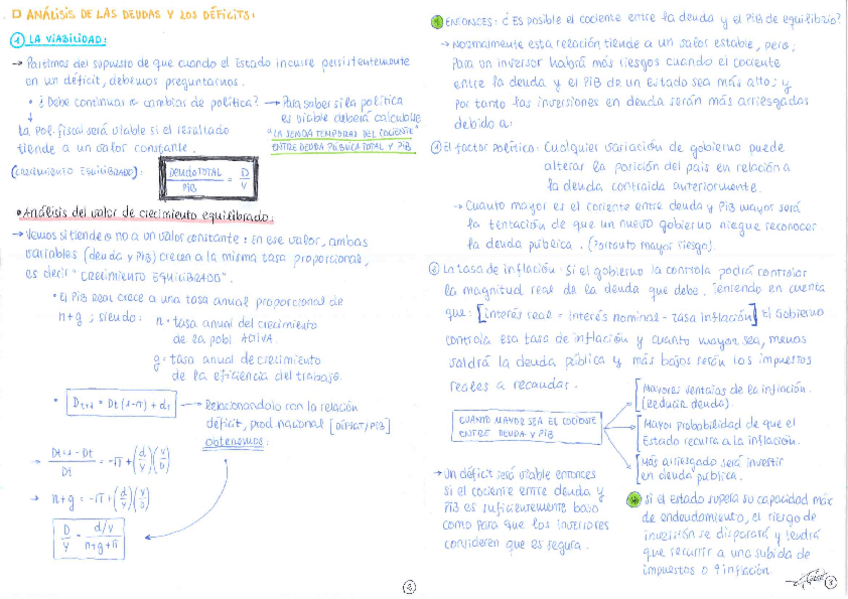 ANÁLISIS DE LAS DEUDAS Y LOS DÉFICITS:
1 LA VIABILIDAD:
→ Partimos del supuesto de que cuando el Estado incurre persistentemente
en un déficit, debemos preguntarnos.
• ¿Debe continuar o cambiar de política? → Para saber si la política
es viable deberá calcularse
"LA SENDA TEMPORAL DEL COCIENTE"
ENTRE DEUDA PÚBLICA TOTAL Y PIB.
↓
La pol. fiscal será viable si el resultado
tiende a un valor constante.
(CRECIMIENTO EQUILIBRADO): DEUDA TOTAL / PIB = D / Y
• Análisis del valor de crecimiento equilibrado:
→ Vemos si tiende o no a un valor constante: En ese valor, ambas
variables (deuda y PIB) crecen a la misma tasa proporcional,
es decir "CRECIMIENTO EQUILIBRADO".
• El PIB REAL crece a una tasa anual proporcional de
n+g; siendo: n · tasa anual del crecimiento
de la pobl. ACTIVA.
g · tasa anual de crecimiento
de la eficiencia del trabajo.
• Dt+1 = Dt (1-π) + dt → Relacionándolo con la relación
déficit, prod nacional [DÉFICIT/PIB]
obtenemos:
→ Dt+1 - Dt / Dt = -π + (d/Y)(Y/D)
→ n+g = -π + (d/Y)(Y/D)
D/Y = d/Y / n+g+π
ENTONCES: ¿ES posible el cociente entre la deuda y el PIB de equilibrio?
→ Normalmente esta relación tiende a un valor estable, pero;
Para un inversor habrá más riesgos cuando el cociente
entre la deuda y el PIB de un Estado sea más alto; y
por tanto las inversiones en deuda serán más arriesgadas
debido a:
1 El factor político: Cualquier variación de gobierno puede
alterar la posición del país en relación a
la deuda contraída anteriormente.
→ Cuanto mayor es el cociente entre deuda y PIB mayor será
la tentación de que un nuevo gobierno niegue reconocer
la deuda pública. (Por tanto mayor riesgo).
2 La tasa de inflación: Si el gobierno la controla podrá controlar
la magnitud real de la deuda que debe. Teniendo en cuenta
que: [interés real = interés nominal - tasa inflación] El Gobierno
controla esa tasa de inflación y cuanto mayor sea, menos
valdrá la deuda pública y más bajos serán los impuestos
reales a recaudar.
CUANTO MAYOR SEA EL COCIENTE
ENTRE DEUDA Y PIB
Mayores ventajas de la inflación.
(Reducir deuda).
Mayor probabilidad de que el
Estado recurra a la inflación.
Más arriesgado será invertir
en deuda pública.
→ Un déficit será viable entonces
si el cociente entre deuda y
PIB es suficientemente bajo
como para que los inversores
consideren que es segura.
Si el estado supera su capacidad máx
de endeudamiento, el riesgo de
inversión se disparará y tendrá
que recurrir a una subida de
impuestos o ↑ inflación.